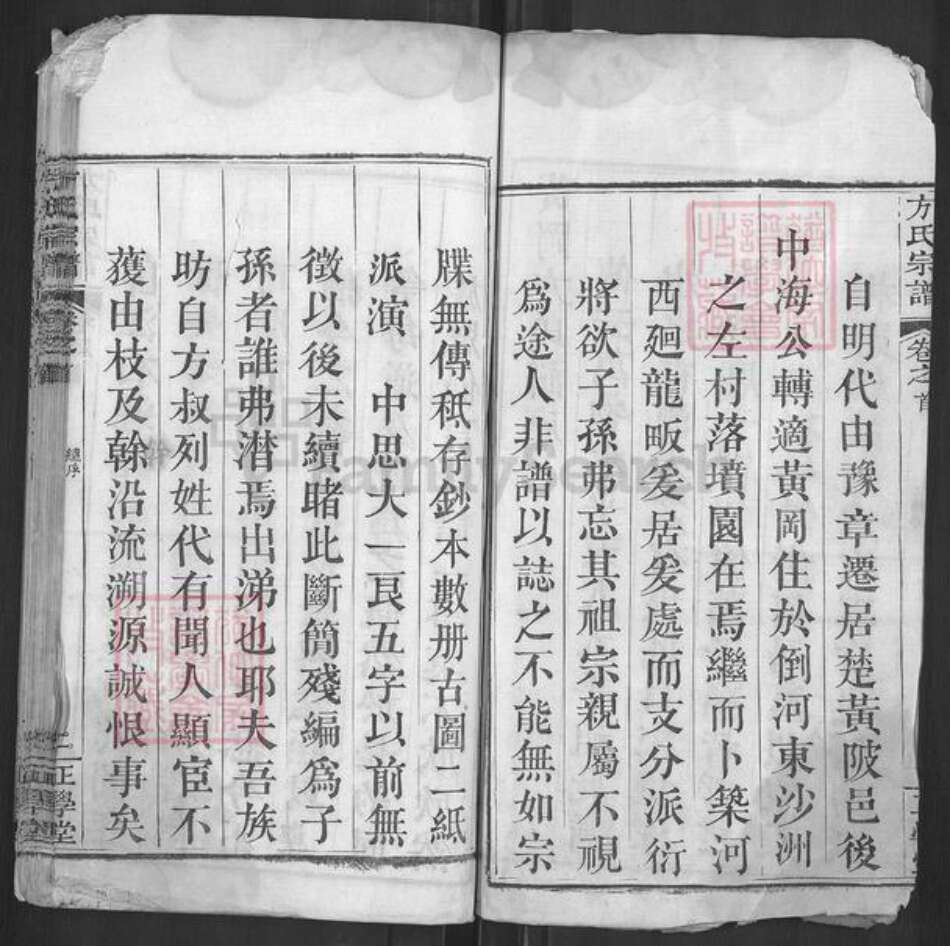 方氏宗譜 卷之首
自明代由豫章遷居楚黃陂邑後
中海公轉適黃岡住於倒河東沙洲
之左村落墳園在焉繼而卜築河
西廻龍畈爰居爰處而支分派衍
將欲子孫弗忘其祖宗親屬不視
爲途人非譜以誌之不能無如宗
牒無傳秪存鈔本數册古圖二紙
派演 中思大一艮五字以前無
徵以後未續睹此斷簡殘編爲子
孫者誰弗潸焉出涕也耶夫吾族
昉自方叔列姓代有聞人顯宦不
蒦由枝及榦沿流溯源誠恨事矣
宗譜
續序
正學堂
FamilySearch